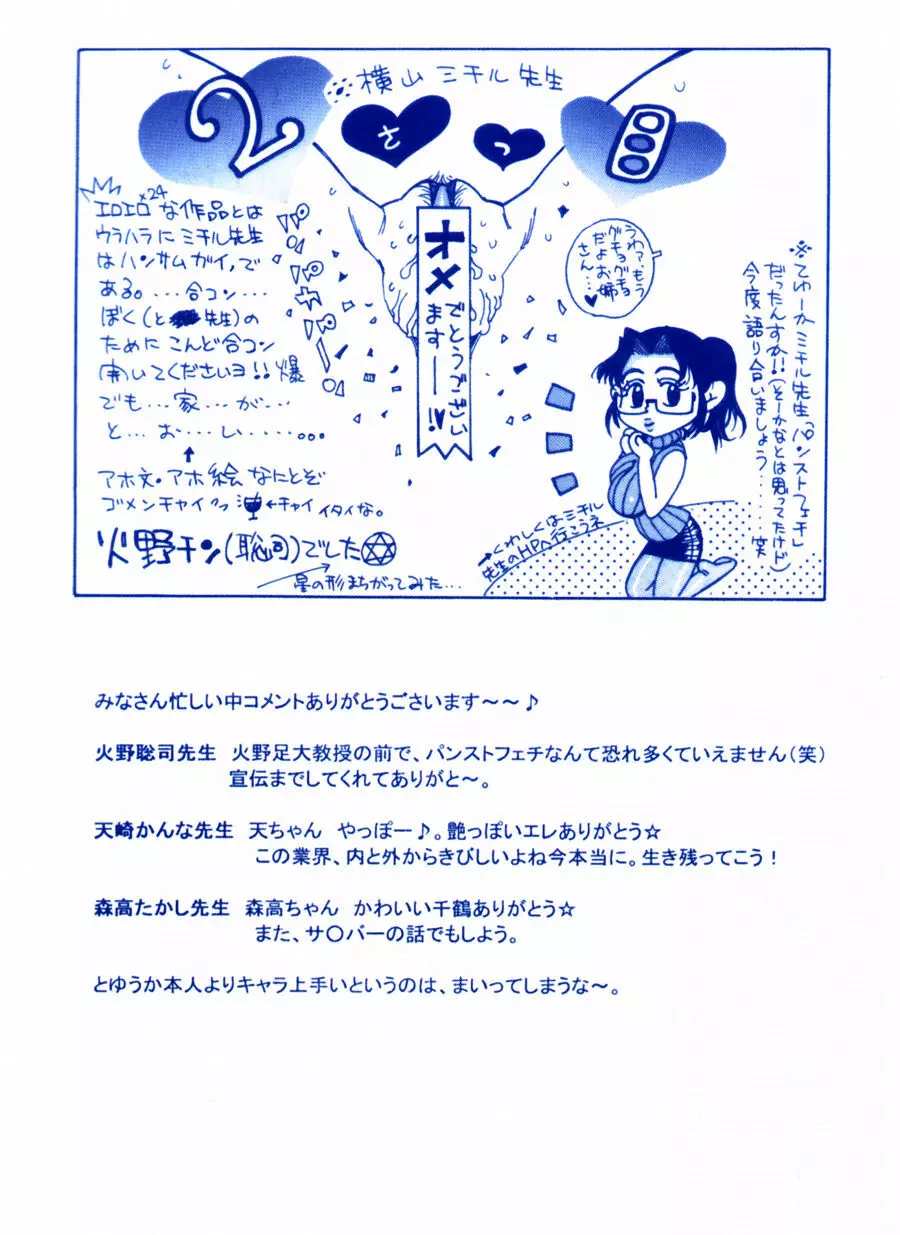 横山ミチル先生
2
さ
つ
目
オメ
でとうござい
ます——!!♥
パパパパーン
エロエロ×24な作品とは
ウラハラにミチル先生
はハンサムガイ,で
ある。...合コン...
ぼく(と 先生)の
ためにこんど合コン
開いてくださいヨ!!爆
でも...家...が...
と...お...し......。。。
↑
アホ文・アホ絵なにとぞ
ゴメンチャイ ←チャイ イタイな。
火野チン(聡司)でした✡
星の形まちがってみた...
うわっ、もう
グチョグチョ
だよお姉
さん...♥
※てゆーかミチル先生「パンストフェチ」
だったんすか!!(そーかなとは思ってたけど)
今度語り合いましょう......笑
→くわしくはミチル
先生のHPへ行こうネ
みなさん忙しい中コメントありがとうございます〜〜♪
火野聡司先生 火野足大教授の前で、パンストフェチなんて恐れ多くていえません(笑)
宣伝までしてくれてありがと〜。
天崎かんな先生 天ちゃん やっぽー♪。艶っぽいエレありがとう☆
この業界、内と外からきびしいよね今本当に。生き残ってこう!
森高たかし先生 森高ちゃん かわいい千鶴ありがとう☆
また、サ〇バーの話でもしよう。
とゆうか本人よりキャラ上手いというのは、まいってしまうな〜。